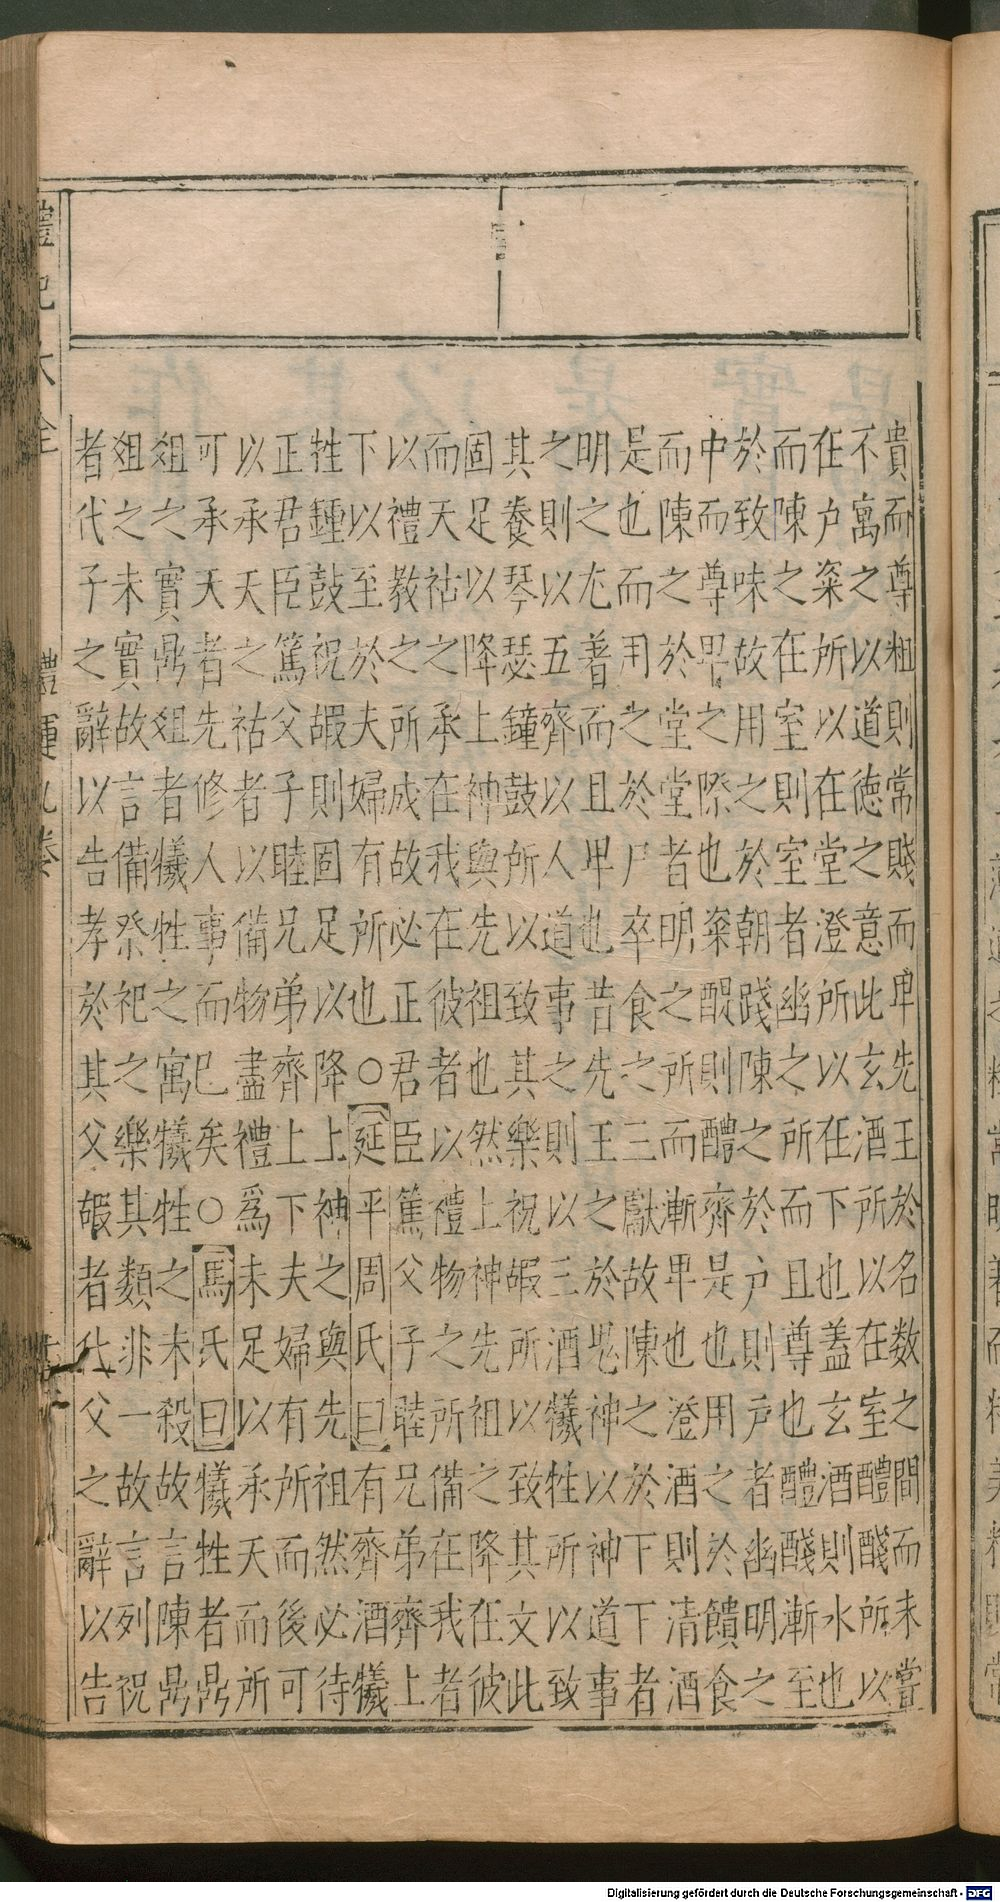 貴而尊粗則常賤而卑先王於名数之間而未嘗
不寓之以道徳之意此玄酒所以在室醴醆所以
在户粢所以在堂澄所以在下也蓋玄酒則水也
而陳之在室則室者幽之所而且尊也醴醆漸至
於致味故用之於朝踐陳之於户則户者幽明之
中而尊卑之際也粢醍則醴齊是也用之於饋食
而陳之於堂堂者明之所而漸卑也澄酒則清酒
是也而用之於尸卒食之三獻故陳之於下下者
明之尤著而且卑也昔先王之於鬼神以神道事
之則以五齊以人道事之則以三酒犧牲所以致
其養琴瑟鐘鼓所以致其樂祝嘏所以致其文此
固足以降上神與先祖也然上神先祖之降在彼
而天祜之承在我在彼者以禮物之所備在我者
以禮教之所成故必正君臣篤父子睦兄弟齊上
下以至於夫婦有所也○延平周氏曰有齊酒犧
牲鍾鼓祝嘏則固足以降上神之與先祖然必待
正君臣篤父子睦兄弟齊上下夫婦有所而後可
以承天之祜者以備物盡禮爲未足以承天而所
可承天者先修人事而已矣○馬氏曰犧牲者鼎
俎之實鼎俎者犧牲之寓犧牲之未殺故言陳鼎
俎之未實故言備祭祀之樂其類非一故言列祝
者代子之辭以告孝於其父嘏者代父之辭以告
禮記大全
禮運九卷
Digitalisierung gefördert durch die Deutsche Forschungsgemeinschaft - DFG